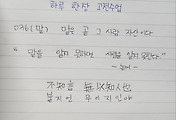 하루 한장 고전수업
036(말) 말은 곧 그 사람 자신이다
"말을 알지 못하면 사람을 알지 못한다"
- 논어 -
不知言 無以知人也
부지언 무이지인야